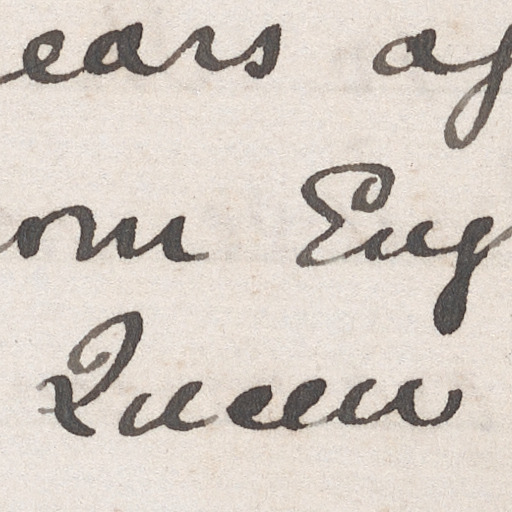 ears ag
om Eng
Queen